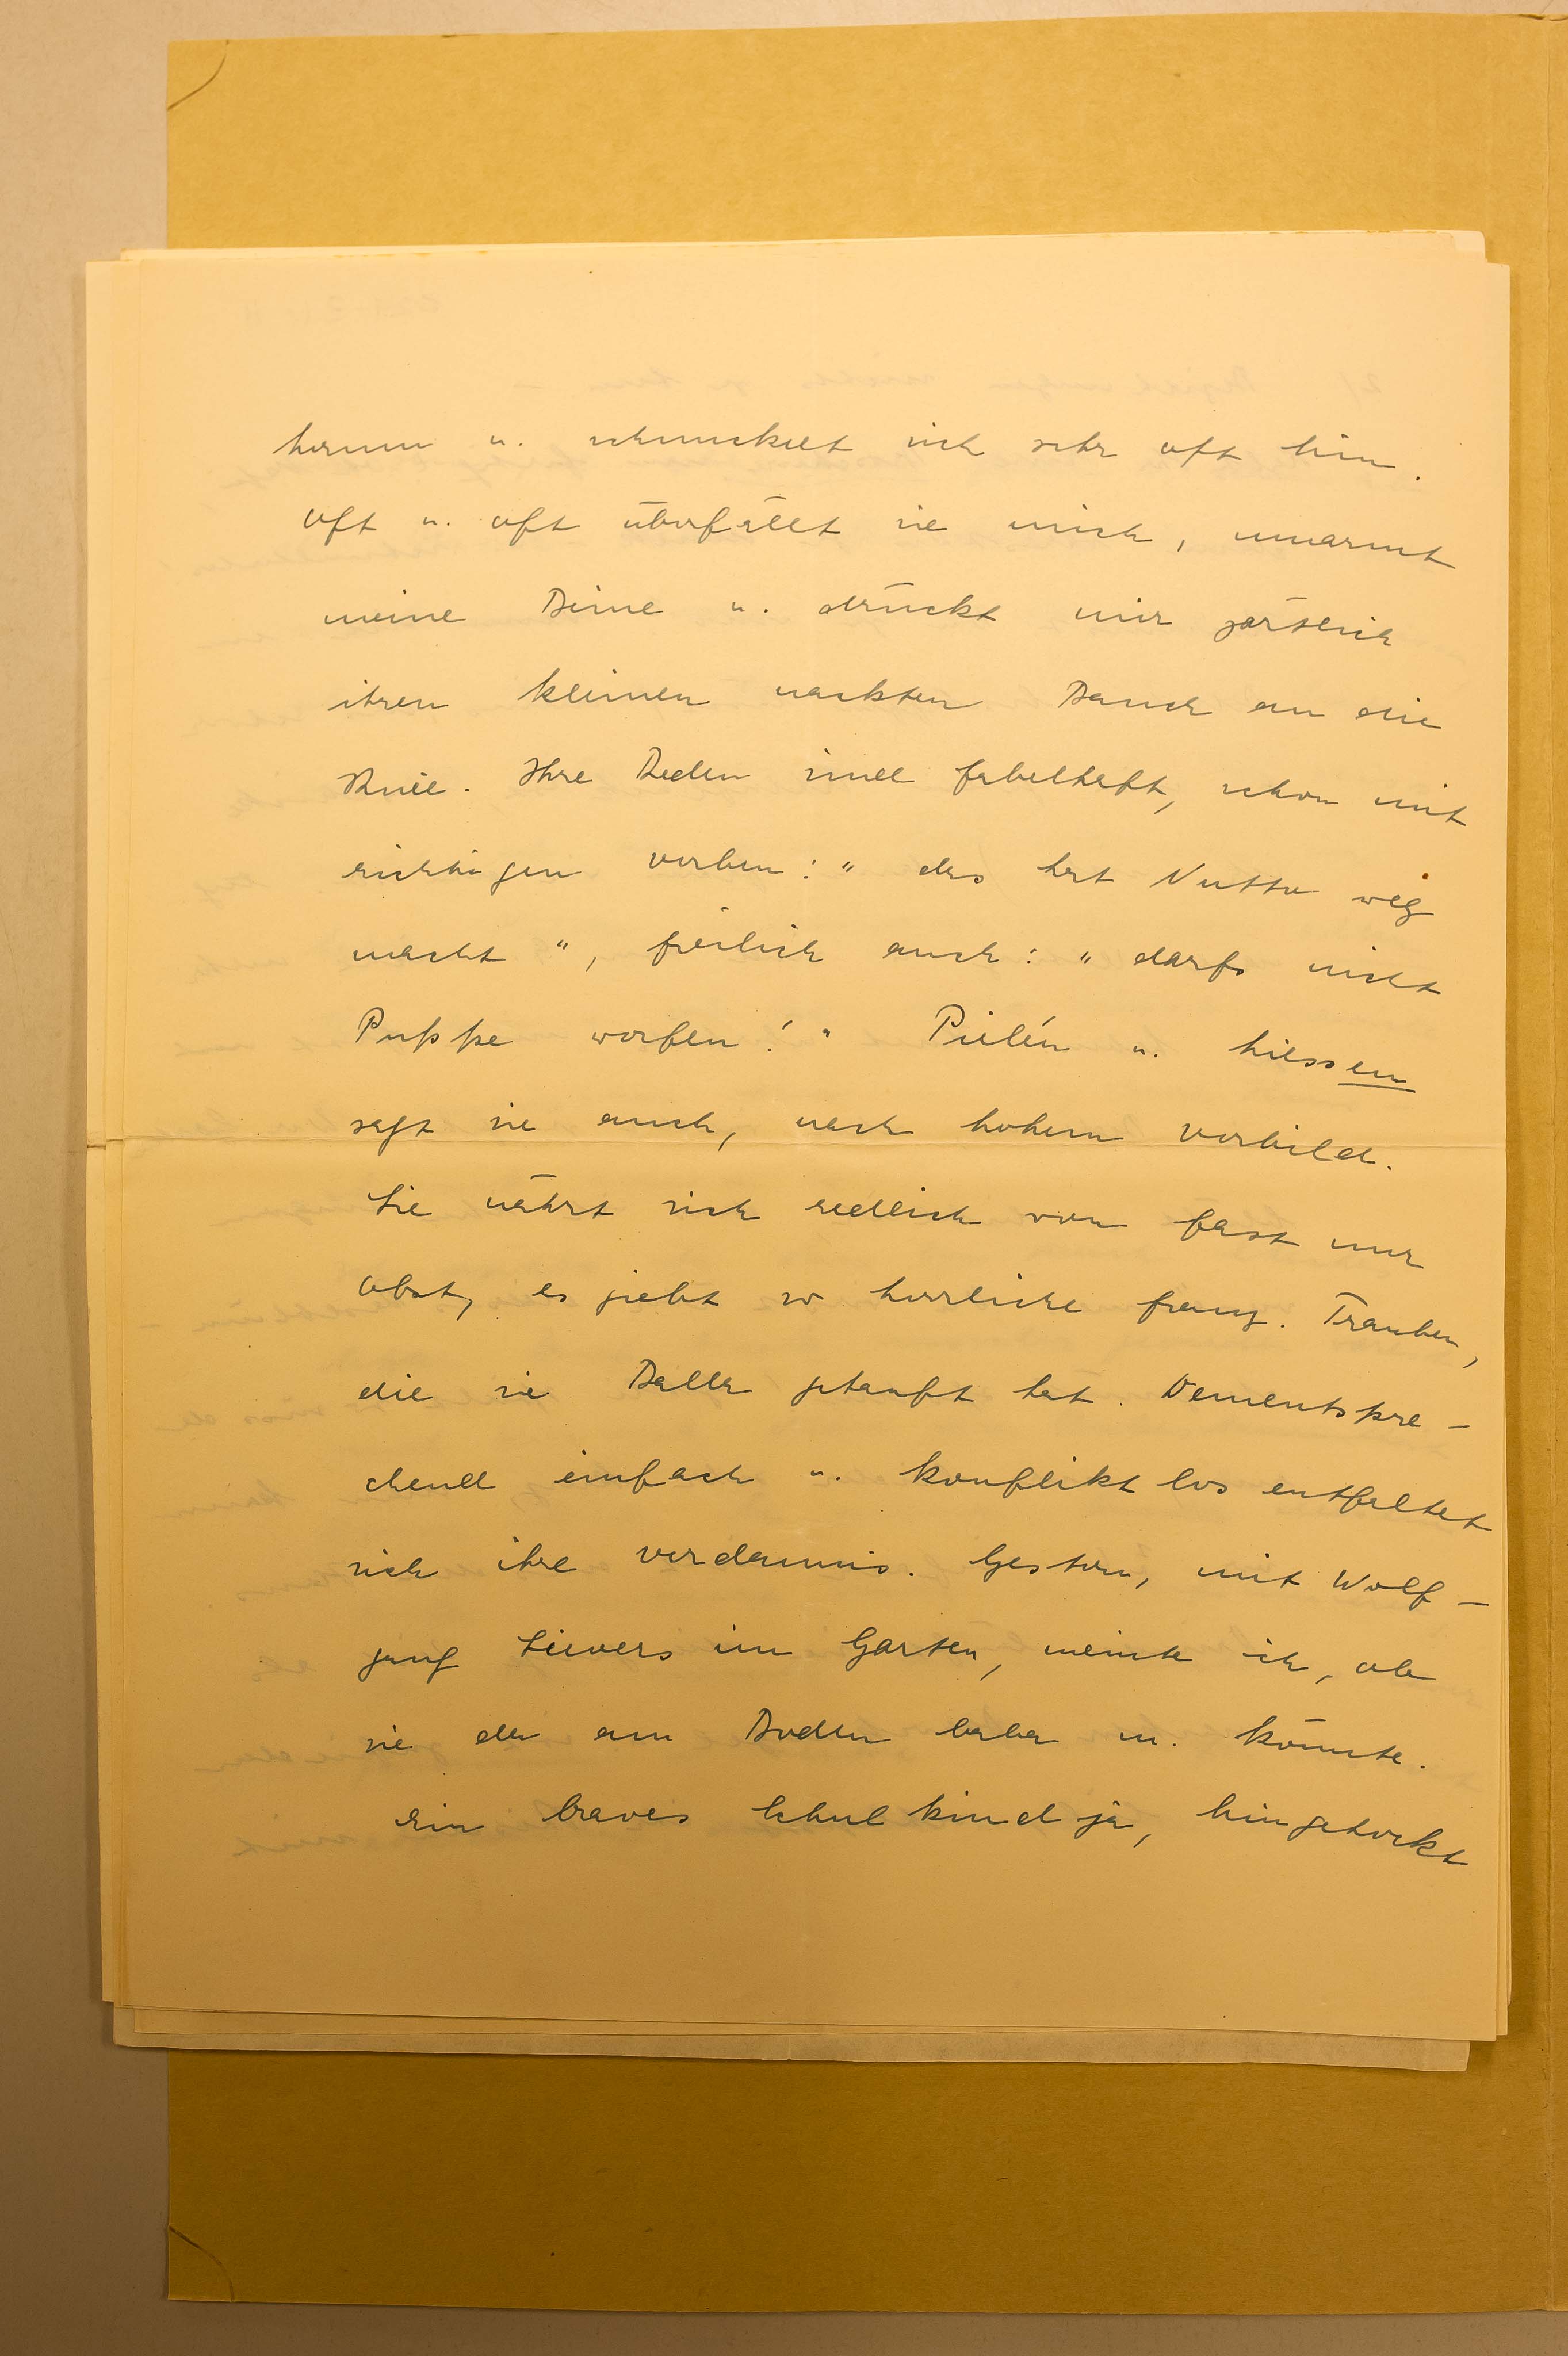 herum u. schmuckelt sich sehr oft hin.
Oft u. oft überfällt sie mich, umarmt
meine Beine u. drückt mir zärtlich
ihren kleinen nackten Bauch an die
Knie. Ihre Reden sind fabelhaft, schon mit
richtigen Verben: " das hat Mutta weg
macht ", freilich auch: " darfs nicht
Puppe worfen! " Pielén u. hiessen
sagt sie auch, nach hohem Vorbild.
Sie nährt sich redlich von fast nur
Obst, es giebt so herrliche franz. Trauben,
die sie Balla getauft hat. Dementspre-
chend einfach u. konfliktlos entfaltet
sich ihre Verdaunis. Gestern, mit Wolf-
gang Sievers im Garten, meinte ich, ob
sie da am Boden baba m. könnte.
Ein braves Schulkind ja, hingehockt